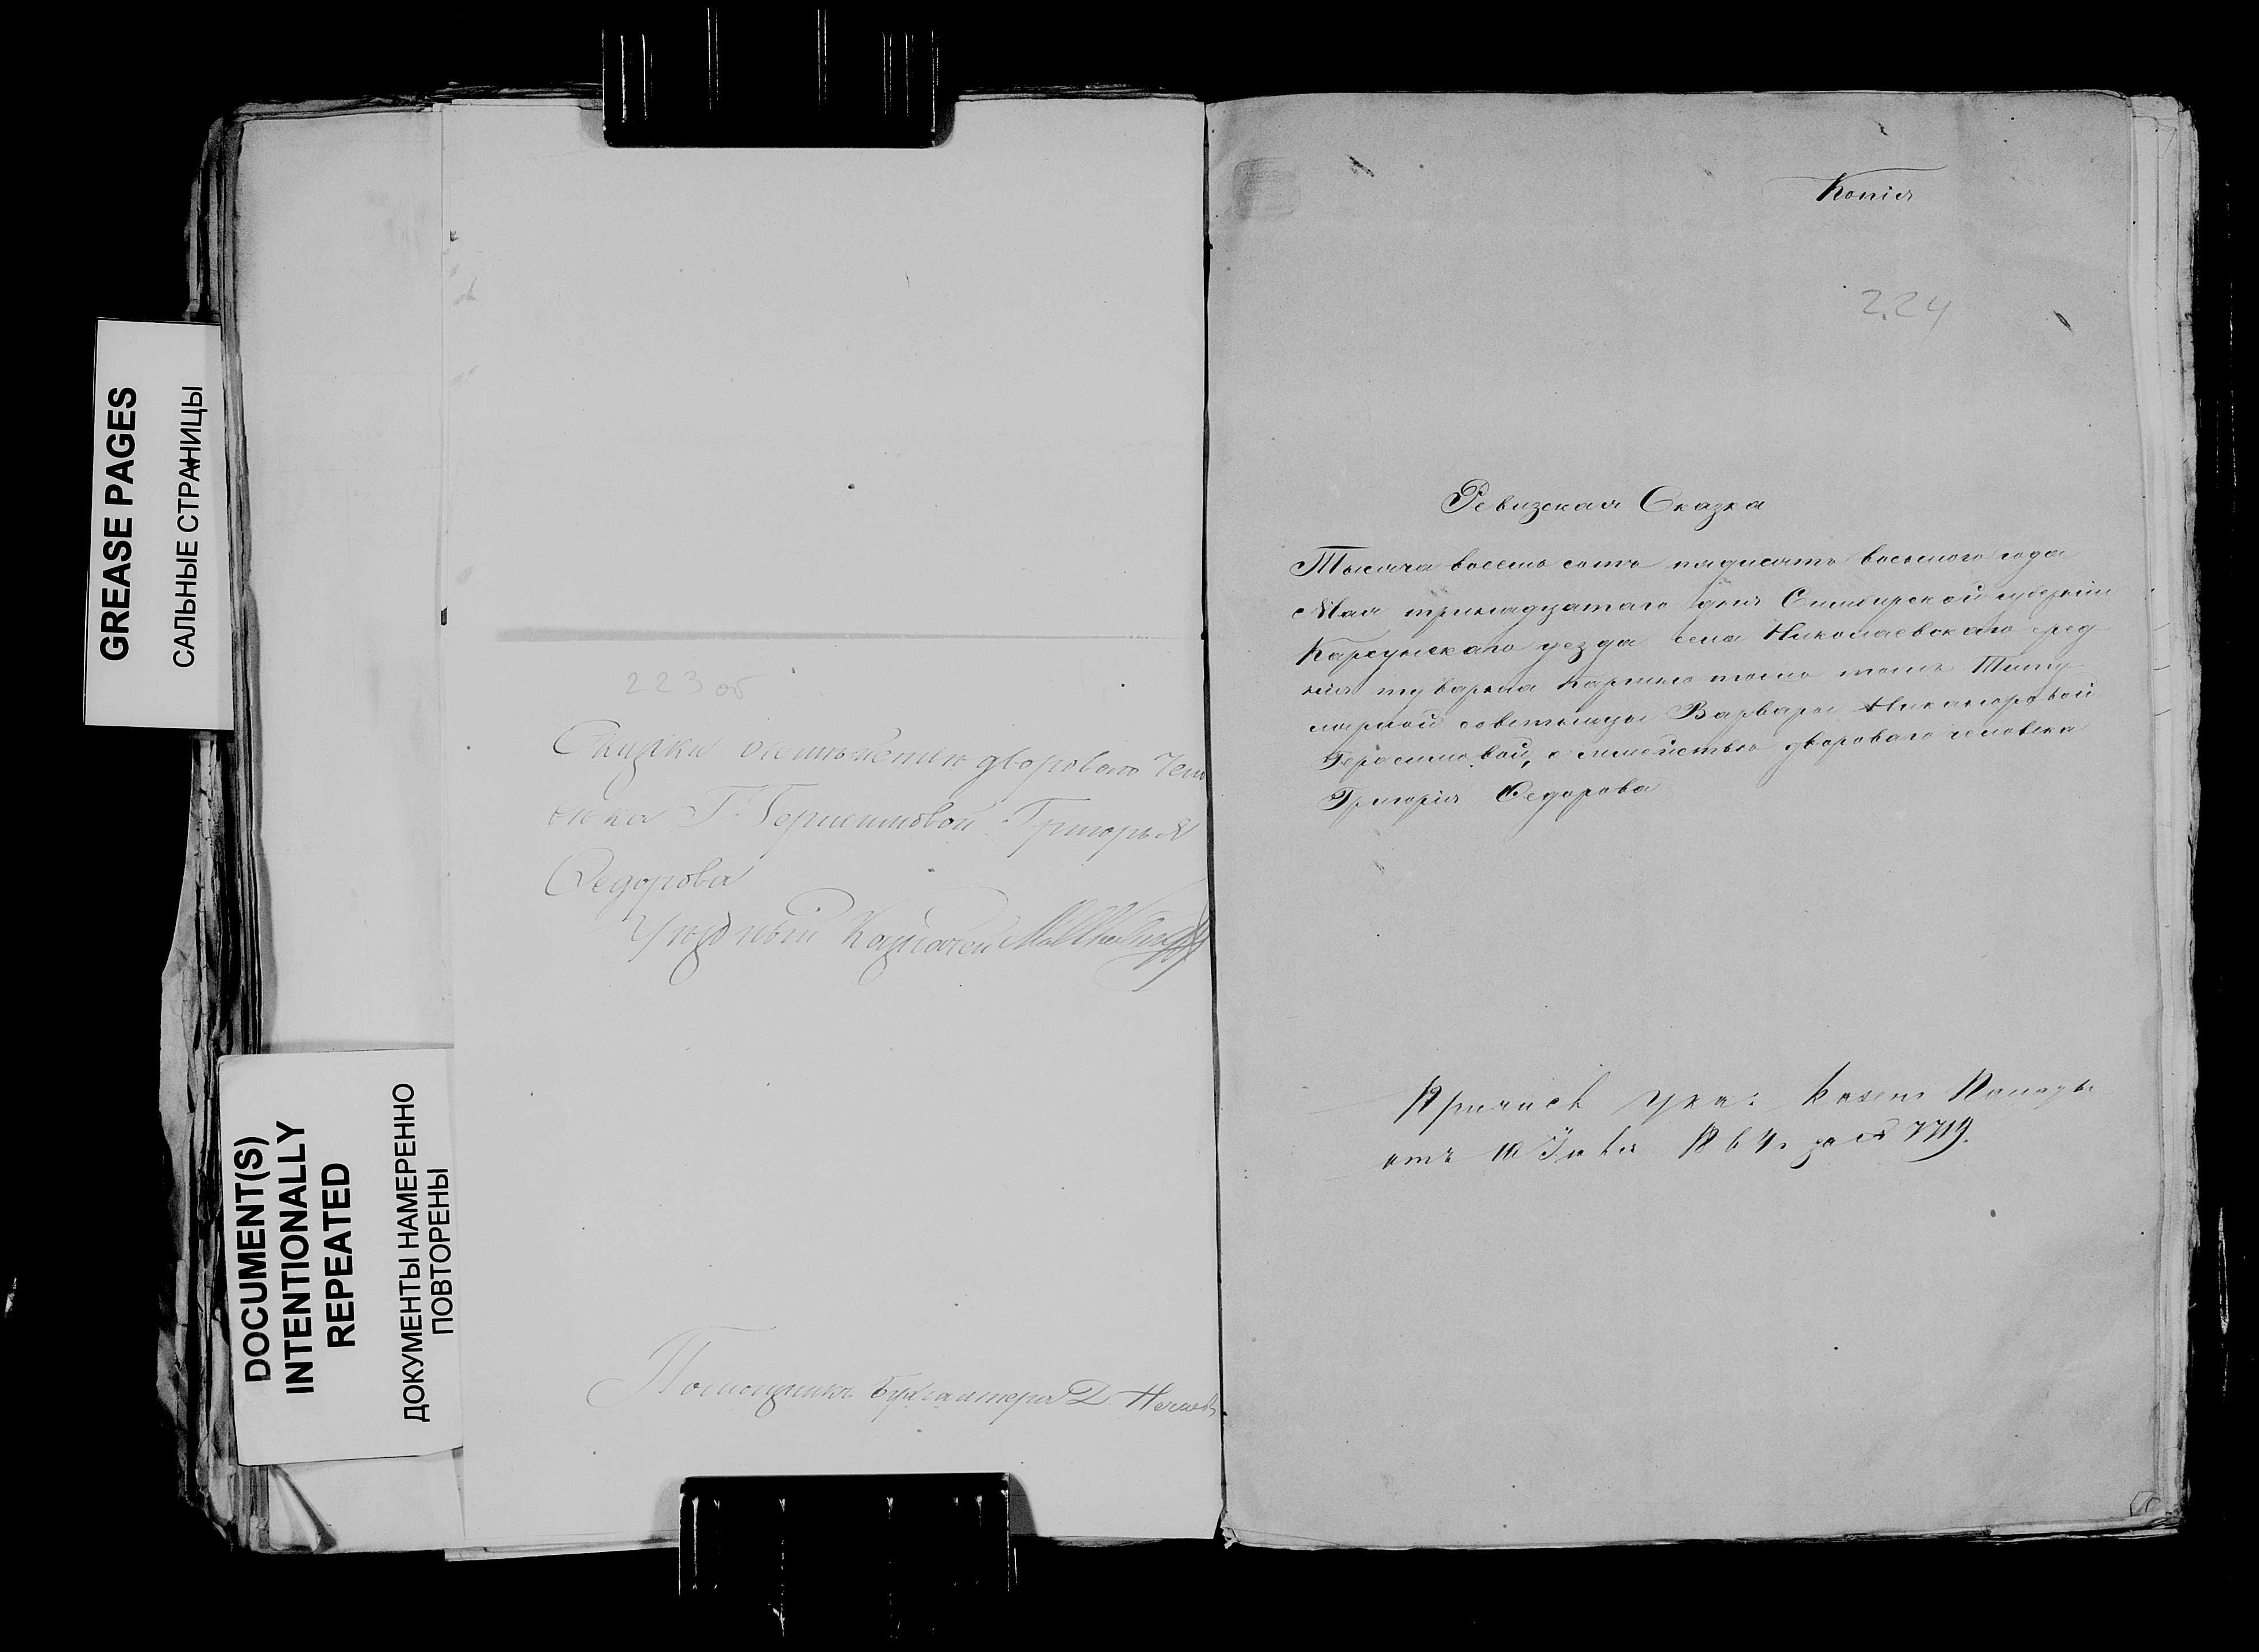 GREASE PAGES
САЛЬНЫЕ СТРАНИЦЫ
DOCUMENT(S)
INTENTIONALLY
REPEATED
ДОКУМЕНТЫ НАМЕРЕННО
ПОВТОРЕНЫ
223 об
Сказки о семействѣ двороваго чело
вѣка Г. Герасимовой Григорья
Ѳедорова
Уѣздный Казначей
Помощникъ Бухгалтера Д.
Копія
224
Ревизская Сказка
Тысяча восемь сотъ пядисятъ восьмого года
Мая тринадцатаго дня Симбирской губерніи
Карсунскаго уезда села Никольевскаго
тожъ Титу
лярной советницы Варвары Никаноровой
Герасимовой, о семействѣ двороваго человека
Григорія Ѳедорова
Казен Палаты
отъ 10 1864 г за № 7719.